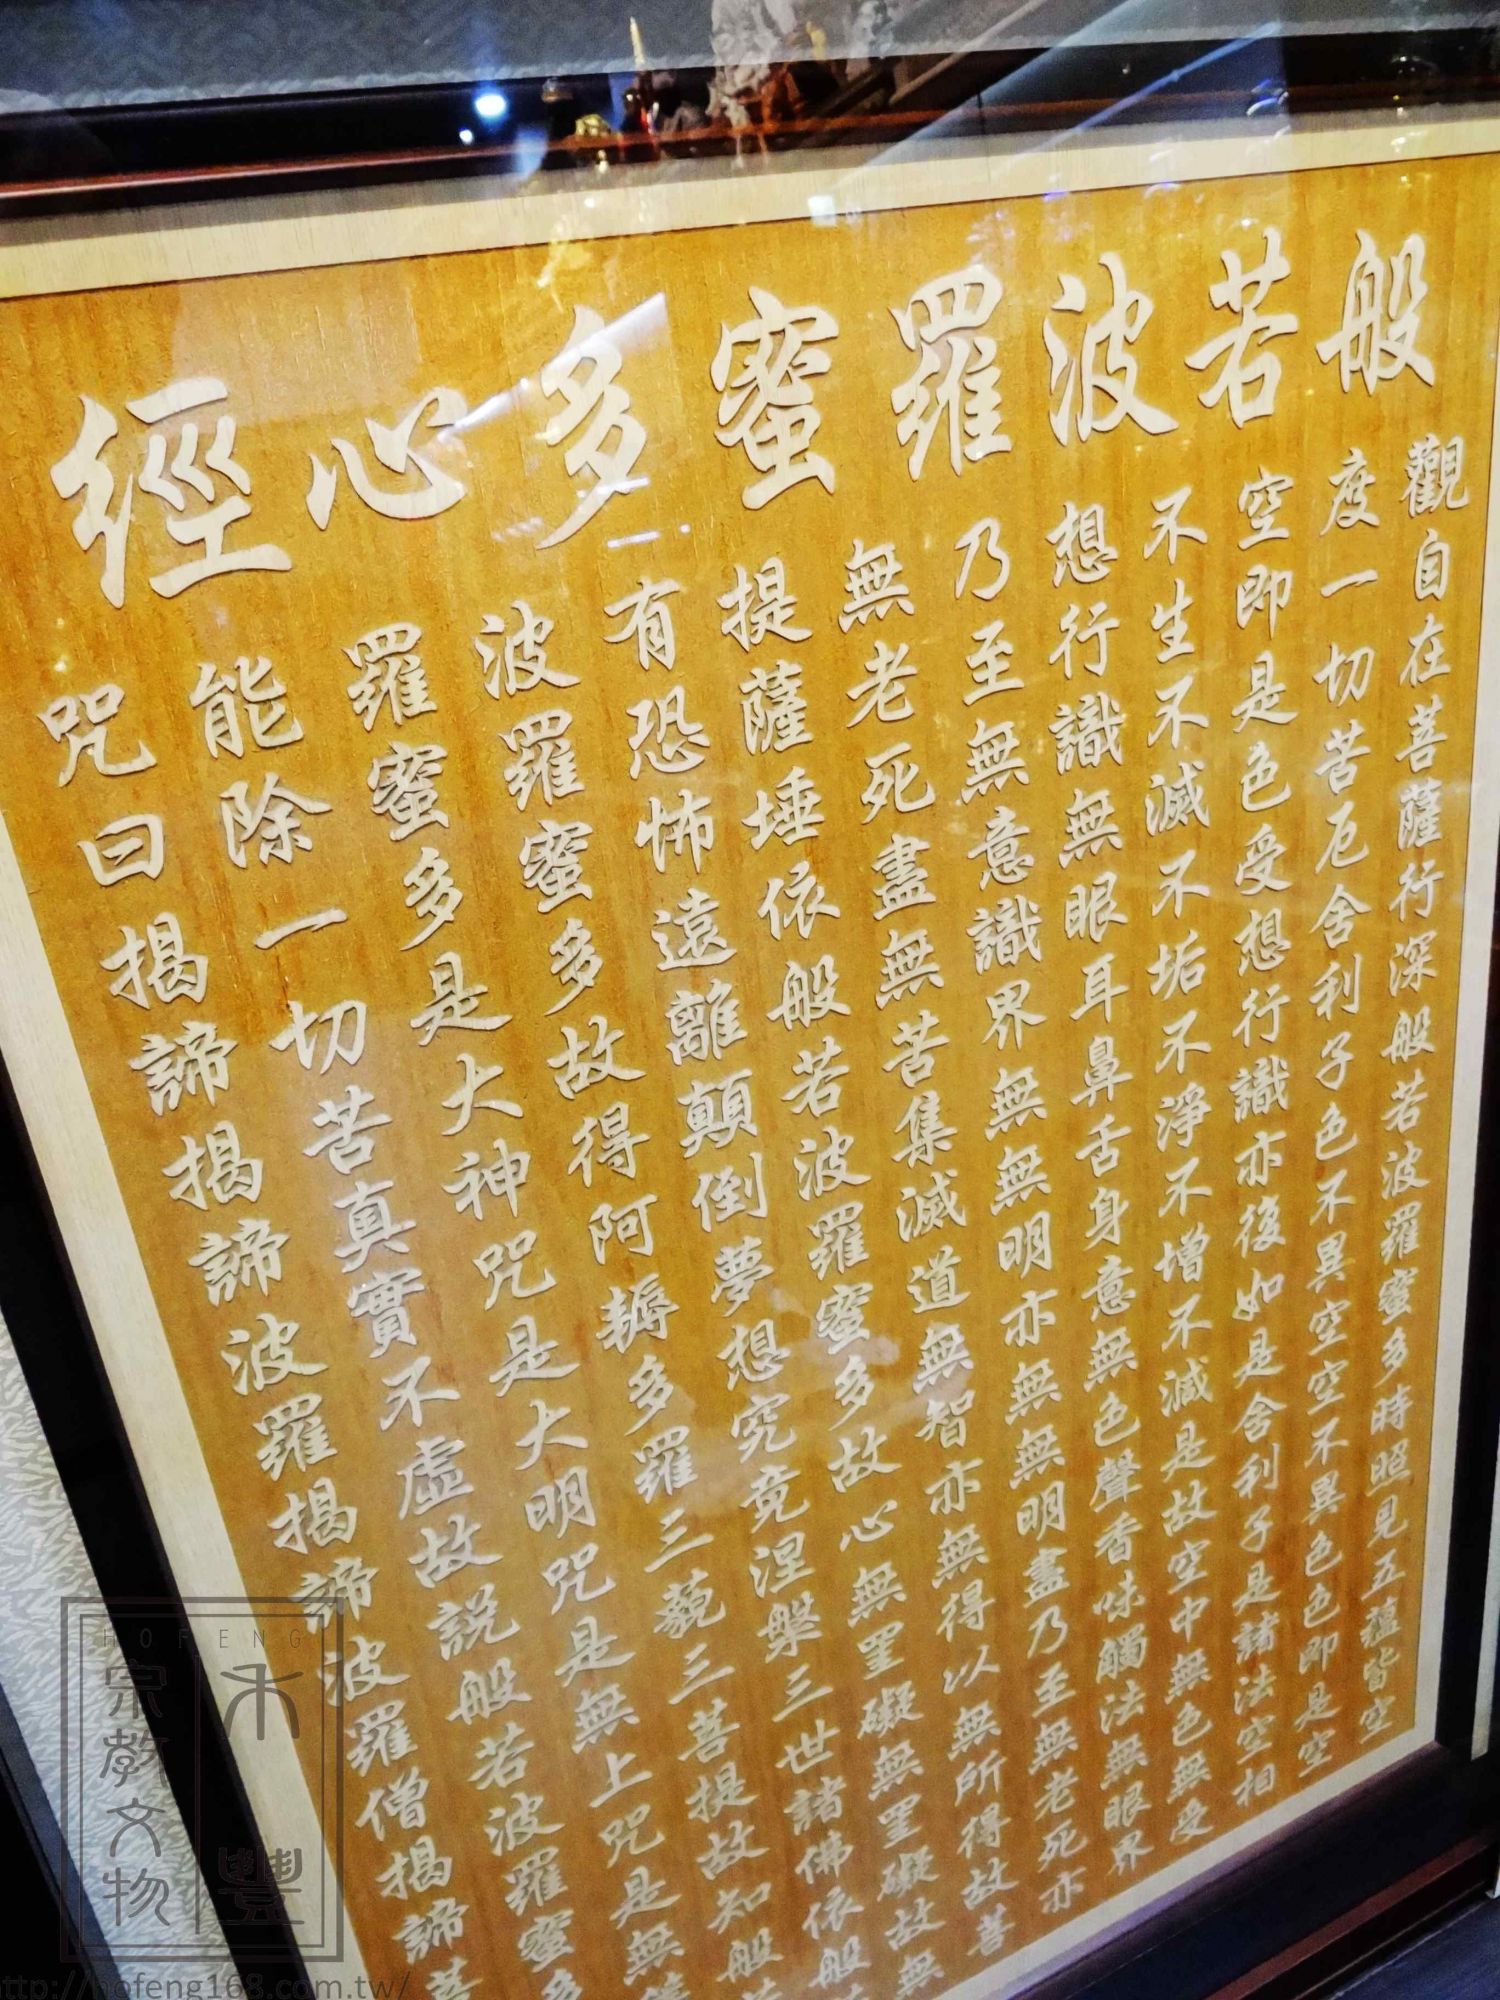 般若波羅蜜多心經
觀自在菩薩行深般若波羅蜜多時照見五蘊皆空
度一切苦厄舍利子色不異空空不異色色即是空
空即是色受想行識亦復如是舍利子是諸法空相
不生不滅不垢不淨不增不減是故空中無色無受
想行識無眼耳鼻舌身意無色聲香味觸法無眼界
乃至無意識界無無明亦無無明盡乃至無老死亦
無老死盡無苦集滅道無智亦無得以無所得故菩
提薩埵依般若波羅蜜多故心無罣礙無罣礙故無
有恐怖遠離顛倒夢想究竟涅槃三世諸佛依般
波羅蜜多故得阿耨多羅三藐三菩提故知般
羅蜜多是大神咒是大明咒是無上咒是無
能除一切苦真實不虛故說般若波羅蜜多
咒曰揭諦揭諦波羅揭諦波羅僧揭諦菩
HOFENG
禾豐
宗教文物
ttp://hofeng168.com.tw/